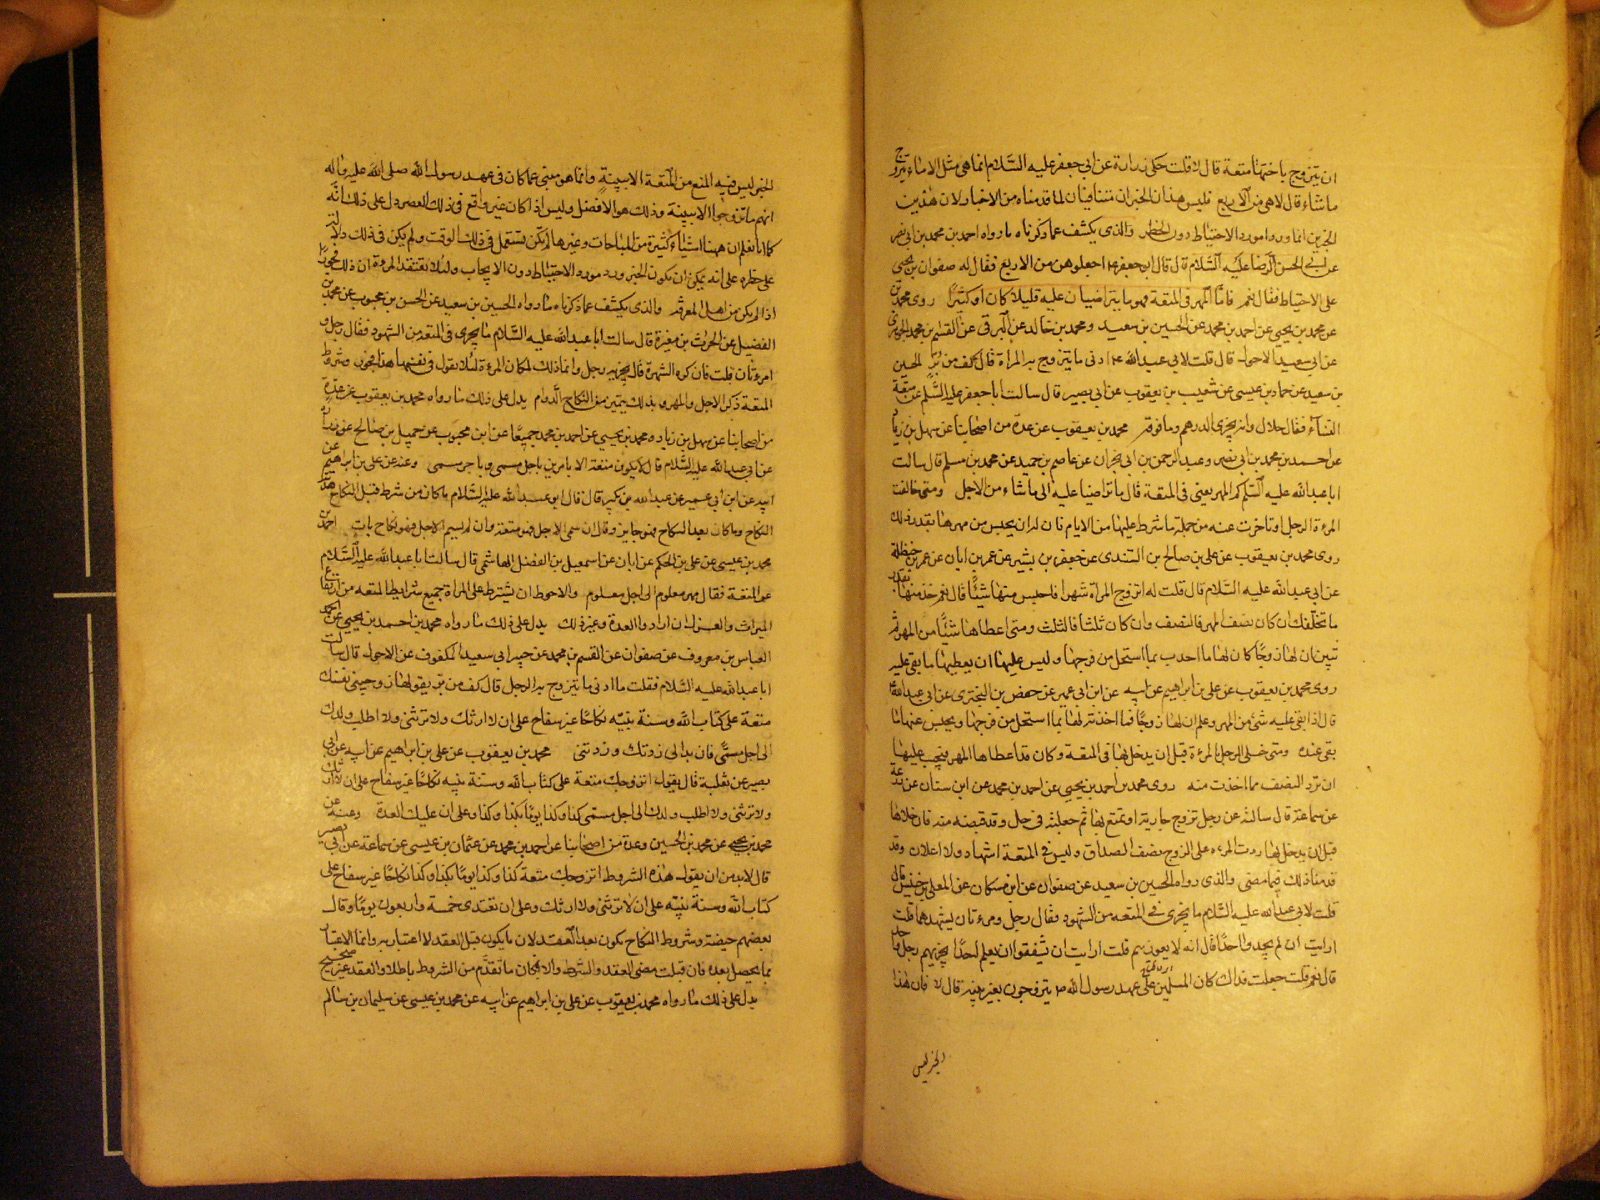 ان يتزوج باختها متعة قال لا قلت حكى زرارة عن ابى جعفر عليه السّلام انما هى مثل الاماء يتزوج
ما شاء قال لا هى من الاربع فليس هذان الخبران متنافيان لما قدمناه من الاخبار لان هذين
الخبرين انما وردا مورد الاحتياط دون الحظر والذى يكشف عما ذكرناه ما رواه احمد بن محمد بن ابى نصر
عن ابى الحسن الرضا عليه السّلام قال قال ابو جعفر ع اجعلوهن من الاربع فقال له صفوان بن يحيى
على الاحتياط فقال نعم فامّا المهر فى المتعة فهو ما يتراضيان عليه قليلا كان او كثيرا روى محمد بن
عن محمد بن يحيى عن احمد بن محمد عن الحسين بن سعيد ومحمد بن خالد عن البرقى عن القسم بن محمد الجوهرى
عن ابى سعيد الاحول قال قلت لابى عبد الله ع ادنى ما يتزوج به المراة قال كف من برّ الحسين
بن سعيد عن حماد بن عيسى عن شعيب بن يعقوب عن ابى بصير قال سالت ابا جعفر عليه السّلم عن متعة
النسآء فقال حلال وانه يجزى الدرهم وما فوقه محمد بن يعقوب عن عدة من اصحابنا عن سهل بن زياد
عن احمد بن محمد بن ابى نصر وعبد الرحمن بن ابى نجران عن عاصم بن حميد عن محمد بن مسلم قال سالت
ابا عبد الله عليه السّلم كم المهر يعنى فى المتعة قال ما تراضيا عليه الى ما شاء من الاجل ومتى خالفت
المرءة الرجل او تاخرت عنه من جملة ما شرط عليها من الايام فان له ان يحبس من مهرها بقدر ذلك
روى محمد بن يعقوب عن على بن صالح بن السندى عن جعفر بن بشير عن عمر بن ابان عن عمر بن حنظلة
عن ابى عبد الله عليه السّلام قال قلت له اتزوج المراة شهرا فاحبس منها شيئًا قال نعم خذ منها بقدر
ما تخلّفك ان كان نصف شهر فالنصف وان كان ثلثا فالثلث ومتى اعطاها شيئًا من المهر ثم
تبين ان لها زوجًا كان لها ما اخذت بما استحل من فرجها وليس عليه ان يعطيها ما بقى عليه
روى محمد بن يعقوب عن على بن ابراهيم عن ابيه عن ابن ابى عمير عن حفص بن البخترى عن ابى عبد الله ع
قال اذا بقى عليه شئ من المهر وعلم ان لها زوجًا فما اخذته فلها بما استحل من فرجها ويحبس عنها ما
بقى عنده ومتى خلى الرجل المرءة قبل ان يدخل بها فى المتعة وكان قد اعطاها المهر فيجب عليها
ان ترد النصف مما اخذت منه روى محمد بن احمد بن يحيى عن احمد بن محمد عن ابن سنان عن زرعة
عن سماعة قال سالته عن رجل تزوج جارية او تمتع بها ثم جعلته فى حل وقد قبضته منه فان خلاها
قبل ان يدخل بها ردت المرءة على الزوج نصف الصداق وليس فى المتعة اشهاد ولا اعلان وقد
قدمنا ذلك فيما مضى والذى رواه الحسين بن سعيد عن صفوان عن ابن مسكان عن المعلى بن خنيس قال
قلت لابى عبد الله عليه السّلام ما يجزى فى المتعة من الشهود فقال رجل ومرءتان يشهدهما قلت
ارايت ان لم يجد واحدًا قال انه لا يعوزهم قلت ارايت ان اشفقوا ان يعلم احدًا يجزيهم رجل واحد
قال نعم قلت جعلت فداك كان المسلمين على عهد رسول الله ص يتزوجون بغير بينة قال لا فان هذا
الخبر ليس
الخبر ليس فيه المنع من المتعة الا ببينةٍ وانما هو منبئ عما كان فى عهد رسول الله صلى الله عليه واله
انهم ما تزوجوا الا ببينة وذلك هو الافضل وليس اذا كان غير واقع فى ذلك العصر دل على ذلك انّه
كما انا نعلم ان ههنا اشياء كثيرة من المباحات وغيرها لم تكن تستعمل فى ذلك الوقت ولم يكن فى ذلك دلالة
على حظره على انه يمكن ان يكون الخبر ورد مورد الاحتياط دون الايجاب ولئلا تعتقد المرءة ان ذلك فجورًا
اذا لم يكن من اهل المعرفة والذى يكشف عما ذكرناه ما رواه الحسين بن سعيد عن الحسن بن محبوب عن محمد بن
الفضيل عن الحرث بن مغيرة قال سالت ابا عبد الله عليه السّلام ما يجزى فى المتعة من الشهود فقال رجل و
امرءتان قلت فان كره الشهرة قال يجزيه رجل وانما ذلك لمكان المرءة لئلا تقول فى نفسها هذا فجور وشرط
المتعة ذكر الاجل والمهر وبذلك يتميز من النكاح الدوام يدل على ذلك ما رواه محمد بن يعقوب عن عدة
من اصحابنا عن سهل بن زياد ومحمد بن يحيى عن احمد بن محمد جميعًا عن ابن محبوب عن جميل بن صالح عن زرارة
عن ابى عبد الله عليه السّلام قال لا يكون متعة الا بامرين باجل مسمى وباجر مسمى وعنه عن على بن ابراهيم عن
ابيه عن ابن ابى عمير عن عبد الله بن بكير قال قال ابو عبد الله عليه السّلام ما كان من شرط قبل النكاح هدمه
النكاح وما كان بعد النكاح فهو جايز وقال ان سمى الاجل فهو متعة وان لم يسم الاجل فهو نكاح بات احمد بن
محمد بن عيسى عن على بن الحكم عن ابان عن اسمعيل بن الفضل الهاشمى قال سالت ابا عبد الله عليه السّلام
عن المتعة فقال مهر معلوم الى اجل معلوم والاحوط ان يشترط على المراة جميع شرايط المتعة من ارتفاع
الميراث والعزل ان اراد والعدة وغير ذلك يدل على ذلك ما رواه محمد بن احمد بن يحيى عن
العباس بن معروف عن صفوان عن القسم بن محمد عن جبير ابى سعيد المكفوف عن الاحول قال سالت
ابا عبد الله عليه السّلام فقلت ما ادنى ما يتزوج به الرجل قال كف من برّ يقول لها زوجينى نفسك
متعة على كتاب الله وسنة نبيّه نكاحًا غير سفاح على ان لا ارثك ولا ترثنى ولا اطلب ولدك
الى اجل مسمّى فان بدا لى زدتك وزدتنى محمد بن يعقوب عن على بن ابراهيم عن ابيه عن ابى
بصير عن ثعلبة قال يقول اتزوجك متعة على كتاب الله وسنة نبيه نكاحًا غير سفاح على ان لا ارثك
ولا ترثنى ولا اطلب ولدك الى اجل مسمّى كذا وكذا يومًا بكذا وكذا وعلى ان عليك العدة وعنه عن
محمد بن يحيى عن محمد بن الحسين وعدة من اصحابنا عن احمد بن محمد عن عثمان بن عيسى عن سماعة عن ابى بصير
قال لا بد من ان يقول هذه الشروط اتزوجك متعة كذا وكذا يومًا بكذا وكذا نكاحًا غير سفاح على
كتاب الله وسنة نبيّه على ان لا ترثنى ولا ارثك وعلى ان تعتدى خمسة واربعون يومًا وقال
بعضهم حيضة وشروط النكاح تكون بعد العقد لان ما يكون قبل العقد لا اعتبار به وانما الاعتبار
بما يحصل بعده فان قبلت مضى العقد والشرط والا فكان ما تقدّم من الشروط باطلا والعقد غير صحيح
يدل على ذلك ما رواه محمد بن يعقوب عن على بن ابراهيم عن ابيه عن محمد بن عيسى عن سليمان بن سالم